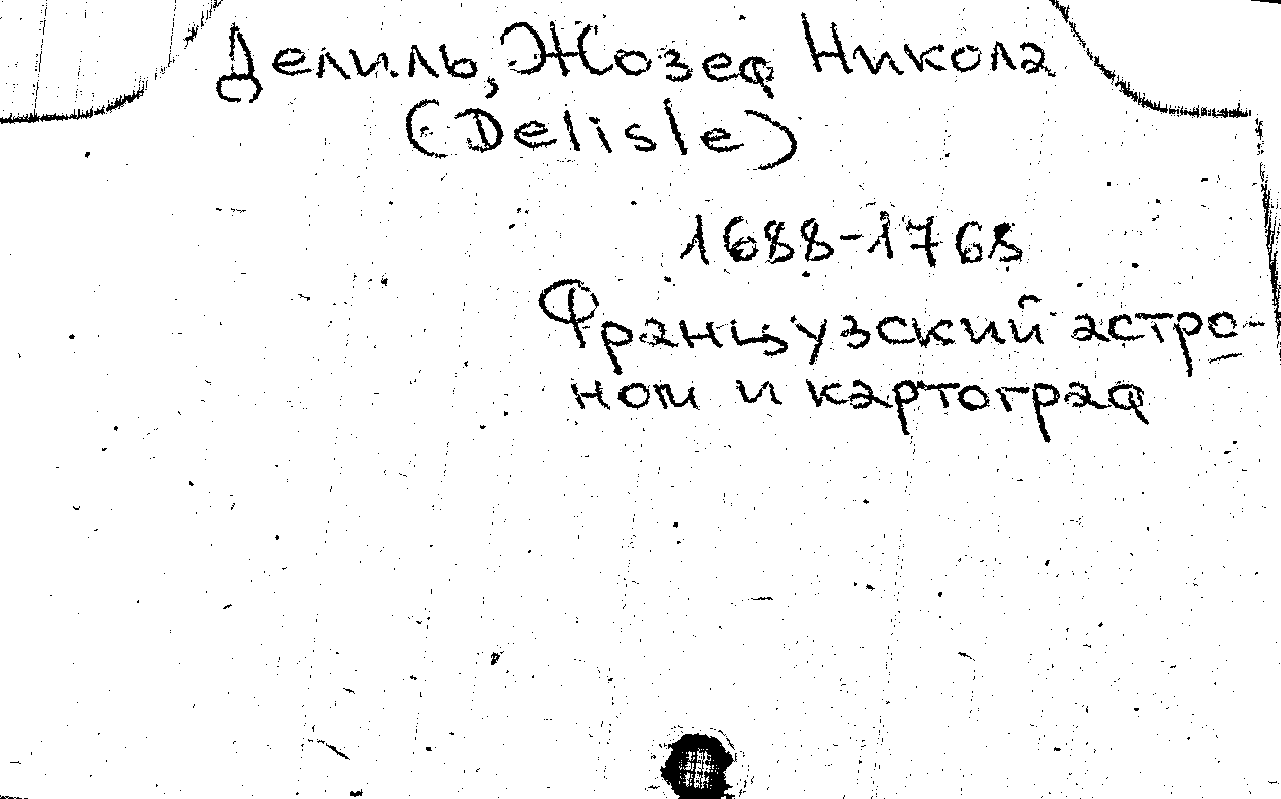 Делиль, Жозеф Никола
(Delisle)
1688-1768
Французский астро-
ном и картограф